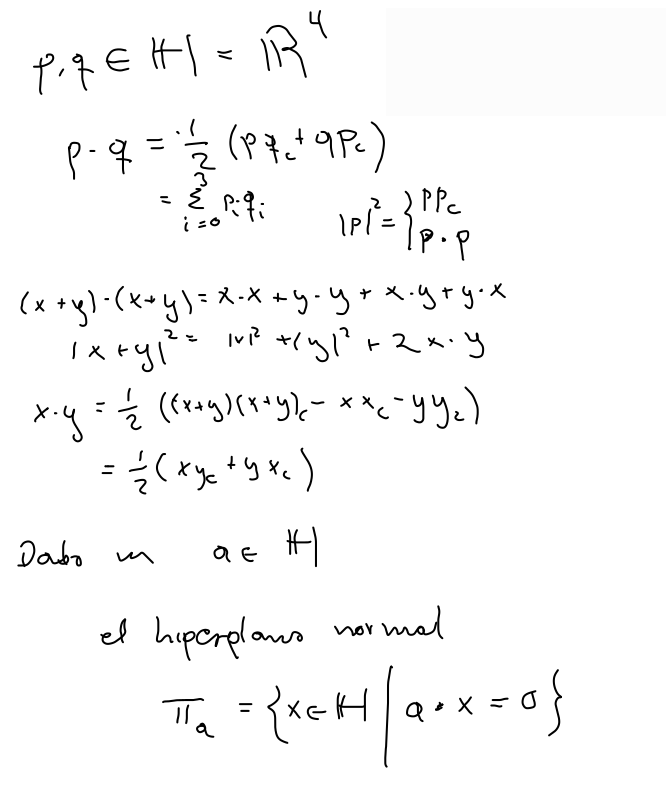 p, q ∈ ℍ = ℝ⁴
p · q = ½ (p q_c + q p_c)
= Σ_{i=0}^{3} p_i q_i |p|² = { p p_c
p · p
(x + y) · (x + y) = x · x + y · y + x · y + y · x
|x + y|² = |x|² + |y|² + 2 x · y
x · y = ½ ((x+y)(x+y)_c − x x_c − y y_c)
= ½ (x y_c + y x_c)
Dado un a ∈ ℍ
el hiperplano normal
Π_a = { x ∈ ℍ | a · x = 0 }